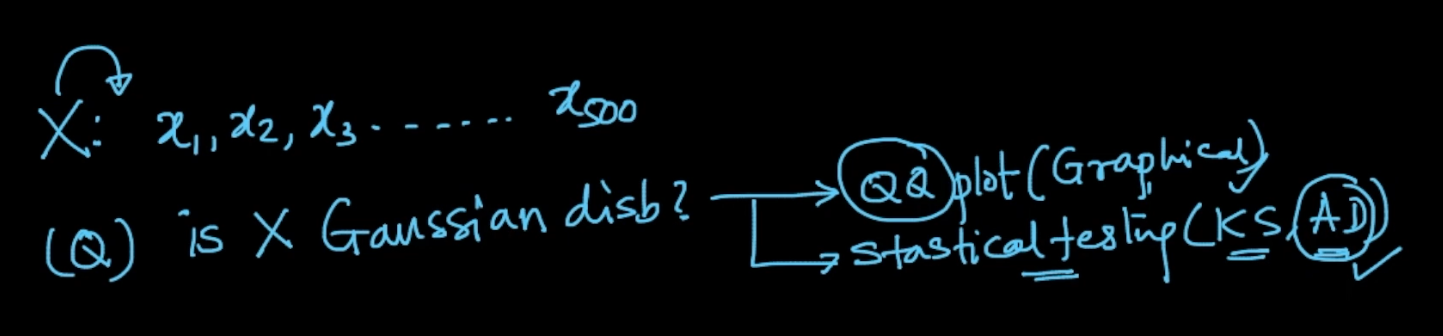 X: x₁, x₂, x₃ ------- x₅₀₀
(Q) is X Gaussian disb? → QQ plot (Graphical)
→ Stastical testing (KS, AD)